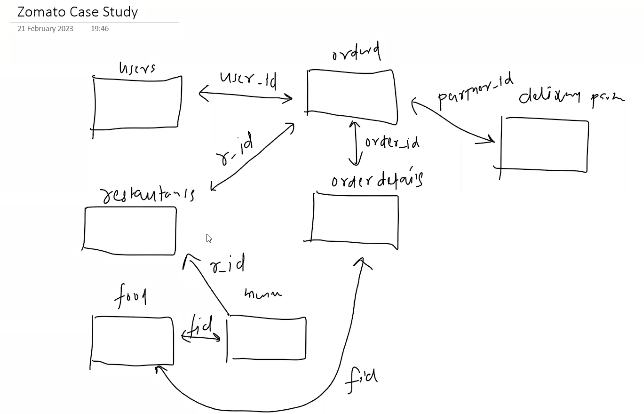 Zomato Case Study
21 February 2023 19:46
users
user_id
orderd
partner_id
delivery
r_id
order_id
restautants
order details
r_id
food
menu
fid
fid